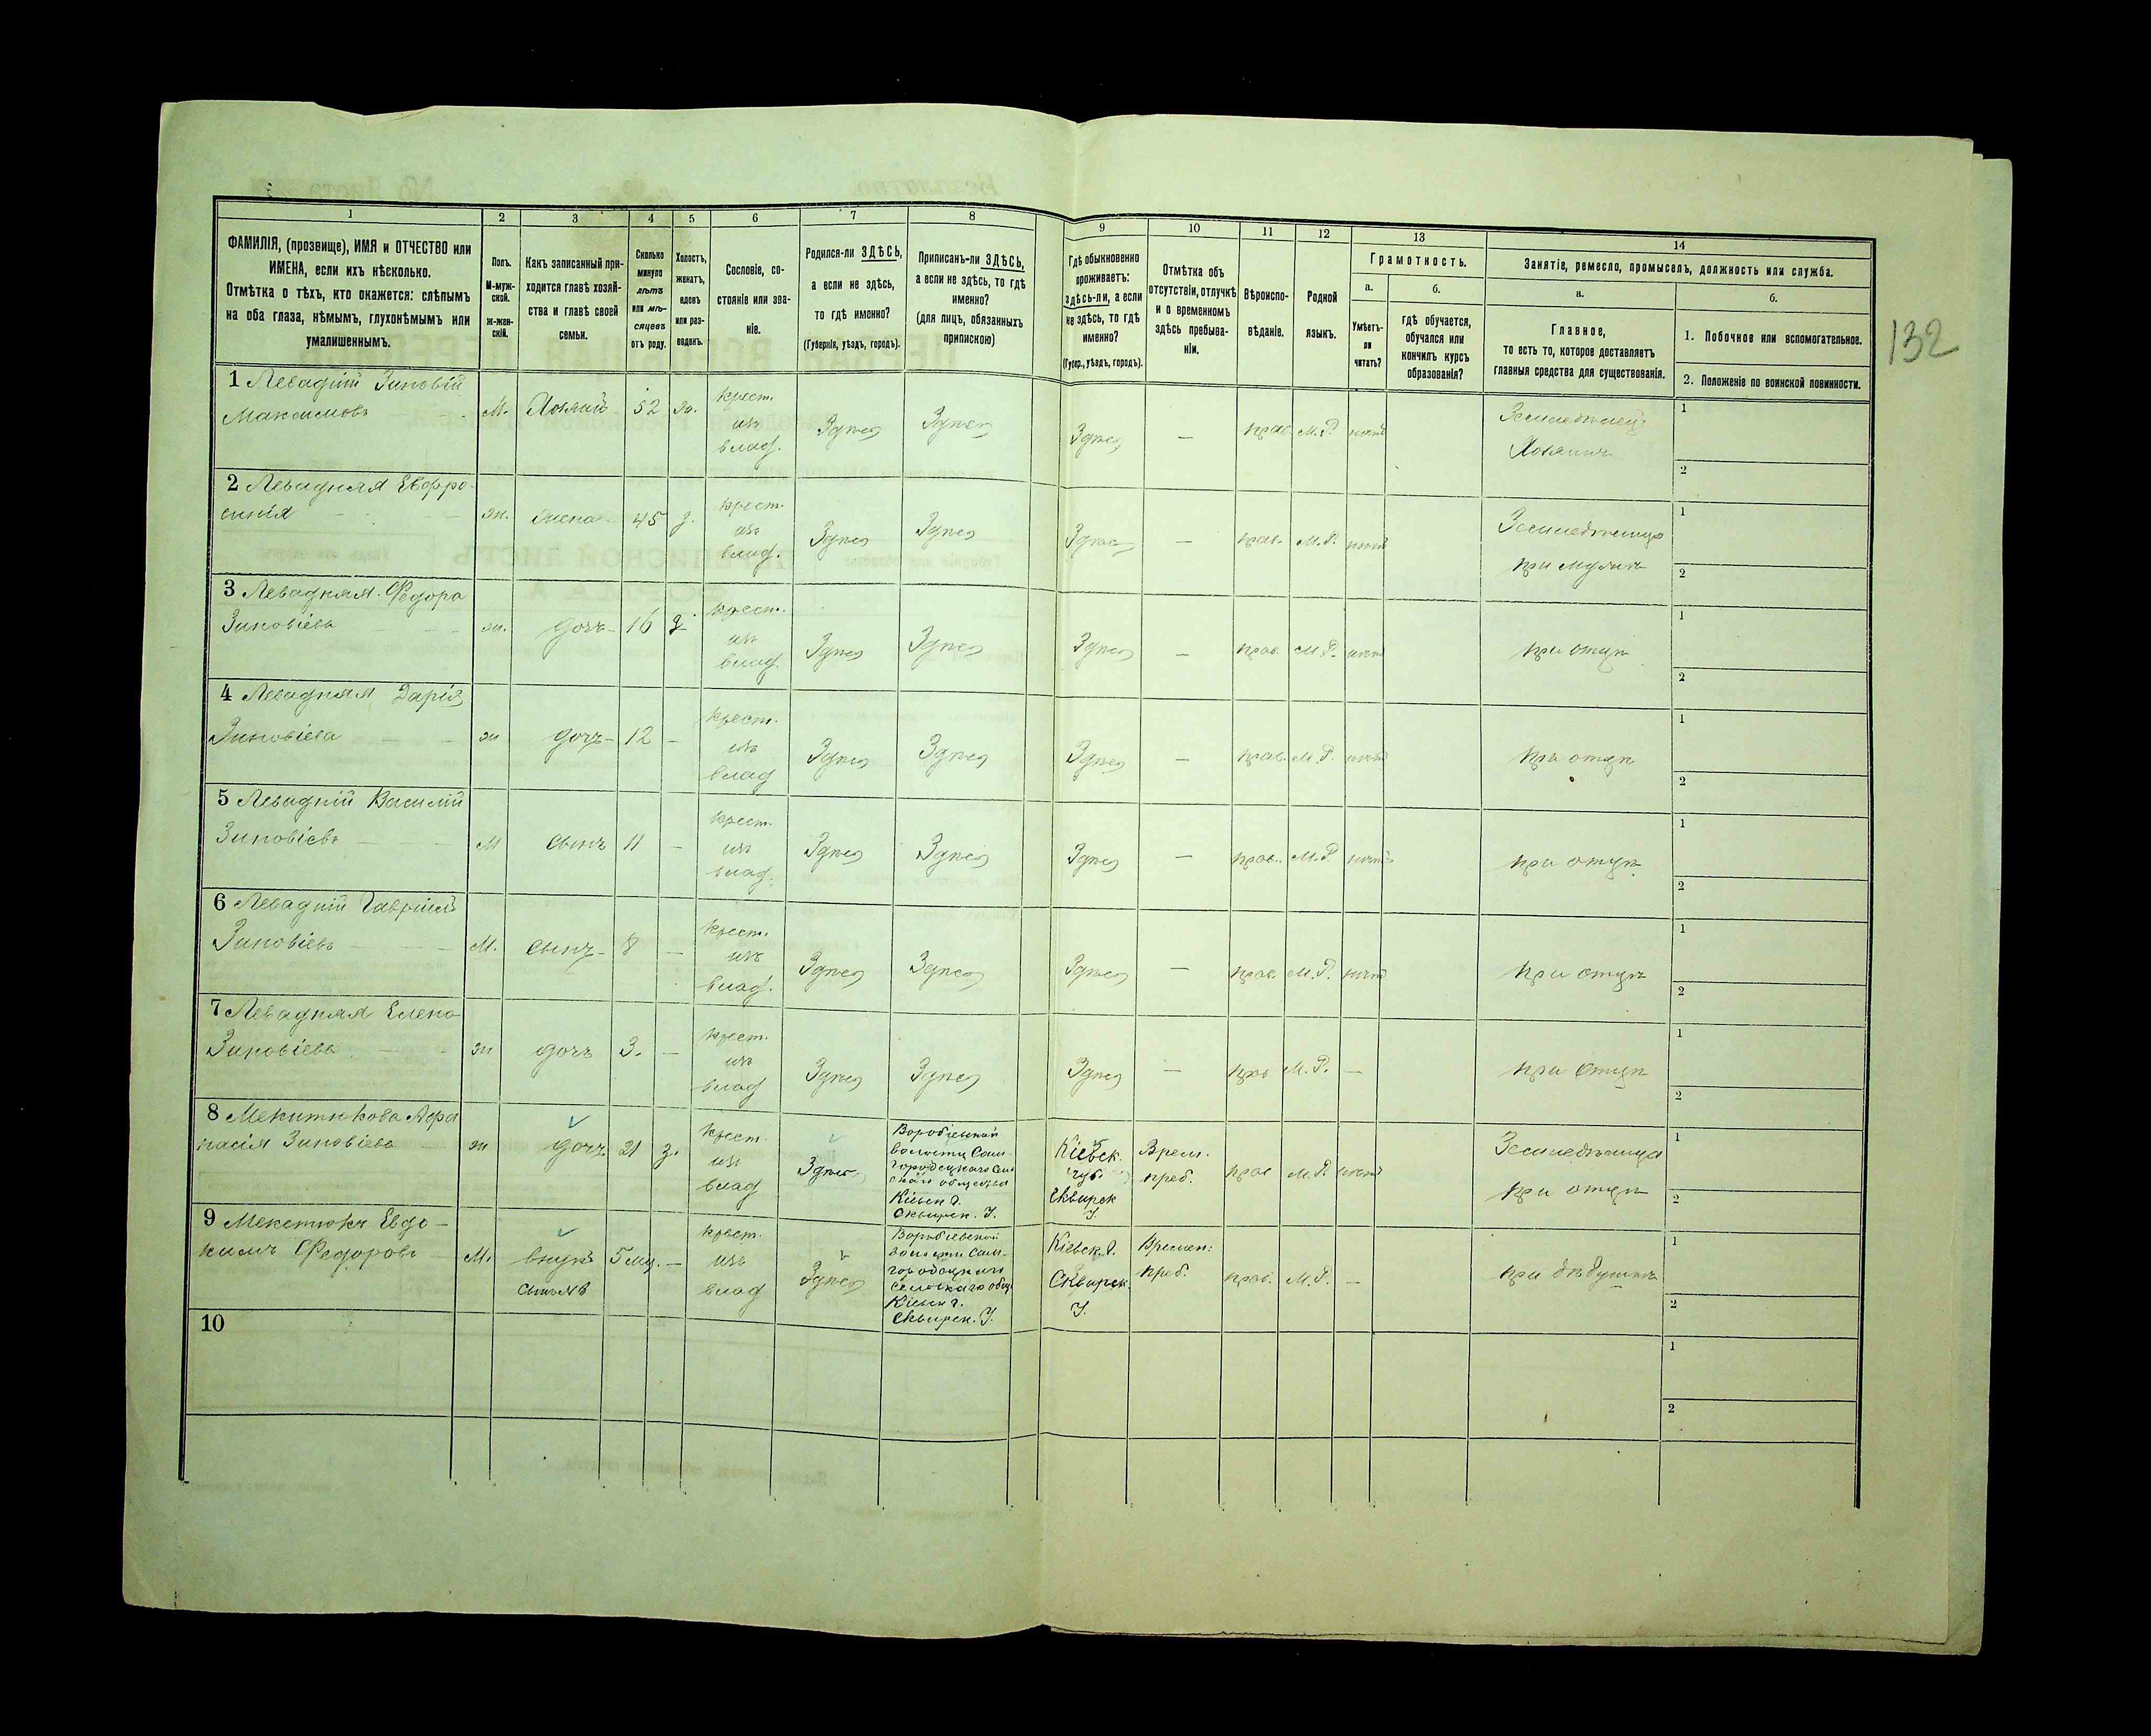 132
1 2 3 4 5 6 7 8 9 10 11 12 13 14
ФАМИЛІЯ, (прозвище), ИМЯ и ОТЧЕСТВО или
ИМЕНА, если ихъ нѣсколько.
Отмѣтка о тѣхъ, кто окажется: слѣпымъ
на оба глаза, нѣмымъ, глухонѣмымъ или
умалишеннымъ.
Полъ.
М-муж-
ской.
Ж-жен-
скій.
Какъ записанный при-
ходится главѣ хозяй-
ства и главѣ своей
семьи.
Сколько
минуло
лѣтъ
или мѣ-
сяцевъ
отъ роду.
Холостъ,
женатъ,
вдовъ
или раз-
веденъ.
Сословіе, со-
стояніе или зва-
ніе.
Родился-ли ЗДѢСЬ,
а если не здѣсь,
то гдѣ именно?
(Губернія, уѣздъ, городъ).
Приписанъ-ли ЗДѢСЬ,
а если не здѣсь, то гдѣ
именно?
(для лицъ, обязанныхъ
припискою)
Гдѣ обыкновенно
проживаетъ:
здѣсь-ли, а если
не здѣсь, то гдѣ
именно?
(Губер., уѣздъ, городъ).
Отмѣтка объ
отсутствіи, отлучкѣ
и о временномъ
здѣсь пребыва-
ніи.
Вѣроиспо-
вѣданіе.
Родной
языкъ.
Грамотность.
а.
Умѣетъ-
ли
читать?
б.
гдѣ обучается,
обучался или
кончилъ курсъ
образованія?
Занятіе, ремесло, промыселъ, должность или служба.
а.
Главное,
то есть то, которое доставляетъ
главныя средства для существованія.
б.
1. Побочное или вспомогательное.
2. Положеніе по воинской повинности.
1 Левадній Зиновій
Максимовъ М. Хозяинъ 52 ж.
крест.
изъ
влад.
Здѣсь Здѣсь Здѣсь — прав. М.Р. нѣтъ
Земледѣлецъ
Хозяинъ
1
2
2 Левадняя Евфро-
синія жн. жена 45 з.
крест.
изъ
влад.
Здѣсь Здѣсь Здѣсь — прав. М.Р. нѣтъ
Земледѣлица
при мужѣ
1
2
3 Левадняя Федора
Зиновіева жн. дочь 16 з.
крест.
изъ
влад.
Здѣсь Здѣсь Здѣсь — прав. М.Р. нѣтъ
при отцѣ
1
2
4 Левадняя Дарія
Зиновіева жн дочь 12 —
крест.
изъ
влад
Здѣсь Здѣсь Здѣсь — прав. М.Р. нѣтъ
при отцѣ
1
2
5 Левадній Василій
Зиновіевъ М сынъ 11 —
крест.
изъ
влад.
Здѣсь Здѣсь Здѣсь — прав. М.Р. нѣтъ
при отцѣ
1
2
6 Левадній Гавріилъ
Зиновіевъ М. сынъ 8 —
крест.
изъ
влад.
Здѣсь Здѣсь Здѣсь — прав. М.Р. нѣтъ
при отцѣ
1
2
7 Левадняя Елена
Зиновіева жн дочь 3. —
крест.
изъ
влад
Здѣсь Здѣсь Здѣсь — прав М.Р. —
при отцѣ
1
2
8 Афа
насія Зиновіева жн дочь 21 з.
крест.
изъ
влад
Здѣсь
Воробіевской
волости Сам-
городецкаго
общества
Кіевск.
Сквирск. У.
Кіевск.
губ.
Сквирск
У.
Врем.
преб.
прав М.Р. нѣтъ
Земледѣлица
при отцѣ
1
2
9 Евдо-
кимъ Федоровъ М. внукъ 5 мц. —
крест.
изъ
влад
Здѣсь
Воробіевской
волости Сам-
городецкаго
сельскаго общ.
Кіевск г.
Сквирск. У.
Кіевск. г.
Сквирск.
У.
Времен.
преб.
прав. М.Р. —
при дѣдушкѣ
1
2
10
1
2